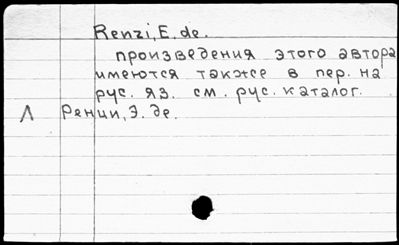 Renzi, E. de.
произведения этого автора
имеются также в пер. на
рус. яз. см. рус. каталог.
Л Ренци, Э. де.